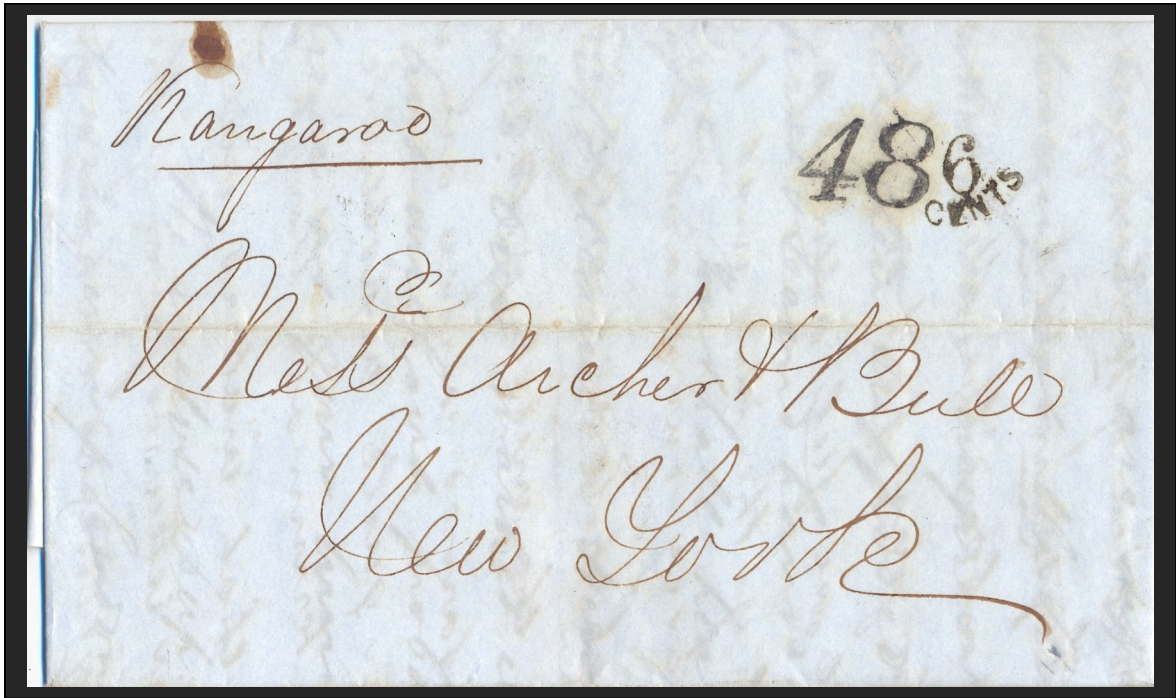 Kangaroo
48 6 CENTS
Messrs Archer & Bull
New York